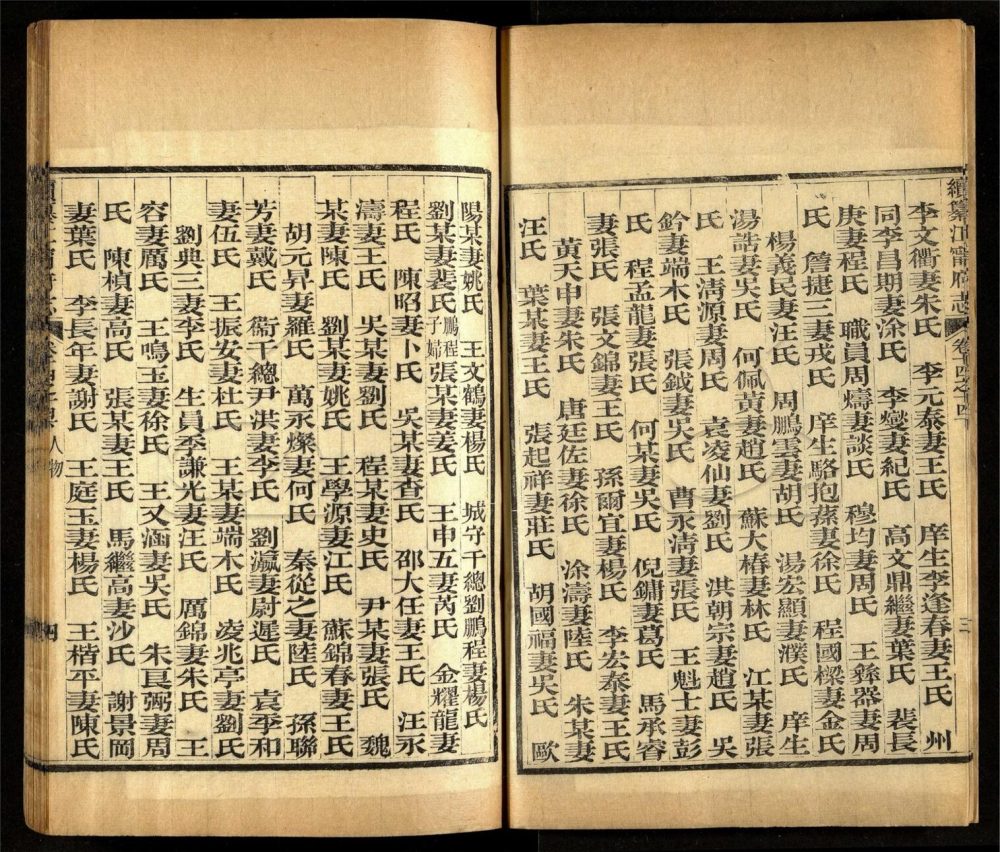 續纂江寧府志
李文衢妻朱氏　李元泰妻王氏　庠生李逢春妻王氏　州
同李昌期妻涂氏　李燮妻紀氏　高文鼎繼妻葉氏　裴長
庚妻程氏　職員周燽妻談氏　穆均妻周氏　王彝器妻周
氏　詹捷三妻戎氏　庠生駱抱蓀妻徐氏　程國樑妻金氏
楊義民妻汪氏　周鵬雲妻胡氏　湯宏顯妻濮氏　庠生
湯誥妻吳氏　何佩黃妻程氏　蘇大椿妻林氏　江某妻張
氏　王淸源妻周氏　袁凌仙妻劉氏　洪朝宗妻趙氏　吳
鈐妻端木氏　張鉞妻吳氏　曹永淸妻張氏　王魁士妻彭
氏　程孟龍妻張氏　何某妻吳氏　倪鏞妻葛氏　馬承睿
妻張氏　張文錦妻王氏　孫爾宜妻楊氏　李宏泰妻王氏
黃天申妻朱氏　唐廷佐妻徐氏　涂濤妻陸氏　朱某妻
汪氏　葉某妻王氏　張起祥妻莊氏　胡國福妻吳氏　歐
陽某妻姚氏　王文鶴妻楊氏　城守千總劉鵬程妻楊氏
劉某妻裴氏鵬程子婦張某妻姜氏　王申五妻芮氏　金耀龍妻
程氏　陳昭妻卜氏　吳某妻查氏　邵大任妻王氏　汪永
濤妻王氏　吳某妻劉氏　程某妻史氏　尹某妻張氏　魏
某妻陳氏　劉某妻姚氏　王學源妻江氏　蘇錦春妻王氏
胡元昇妻羅氏　萬永燦妻何氏　秦從之妻陸氏　孫聯
芳妻戴氏　衞千總尹洪妻李氏　劉瀛妻尉遲氏　袁季和
妻伍氏　王振安妻杜氏　王某妻端木氏　凌兆亭妻劉氏
劉典三妻李氏　生員季謙光妻汪氏　厲錦妻朱氏　王
容妻厲氏　王鳴玉妻徐氏　王又涵妻吳氏　朱良弼妻周
氏　陳楨妻高氏　張某妻王氏　馬繼高妻沙氏　謝景岡
妻葉氏　李長年妻謝氏　王庭玉妻楊氏　王楷平妻陳氏
人物